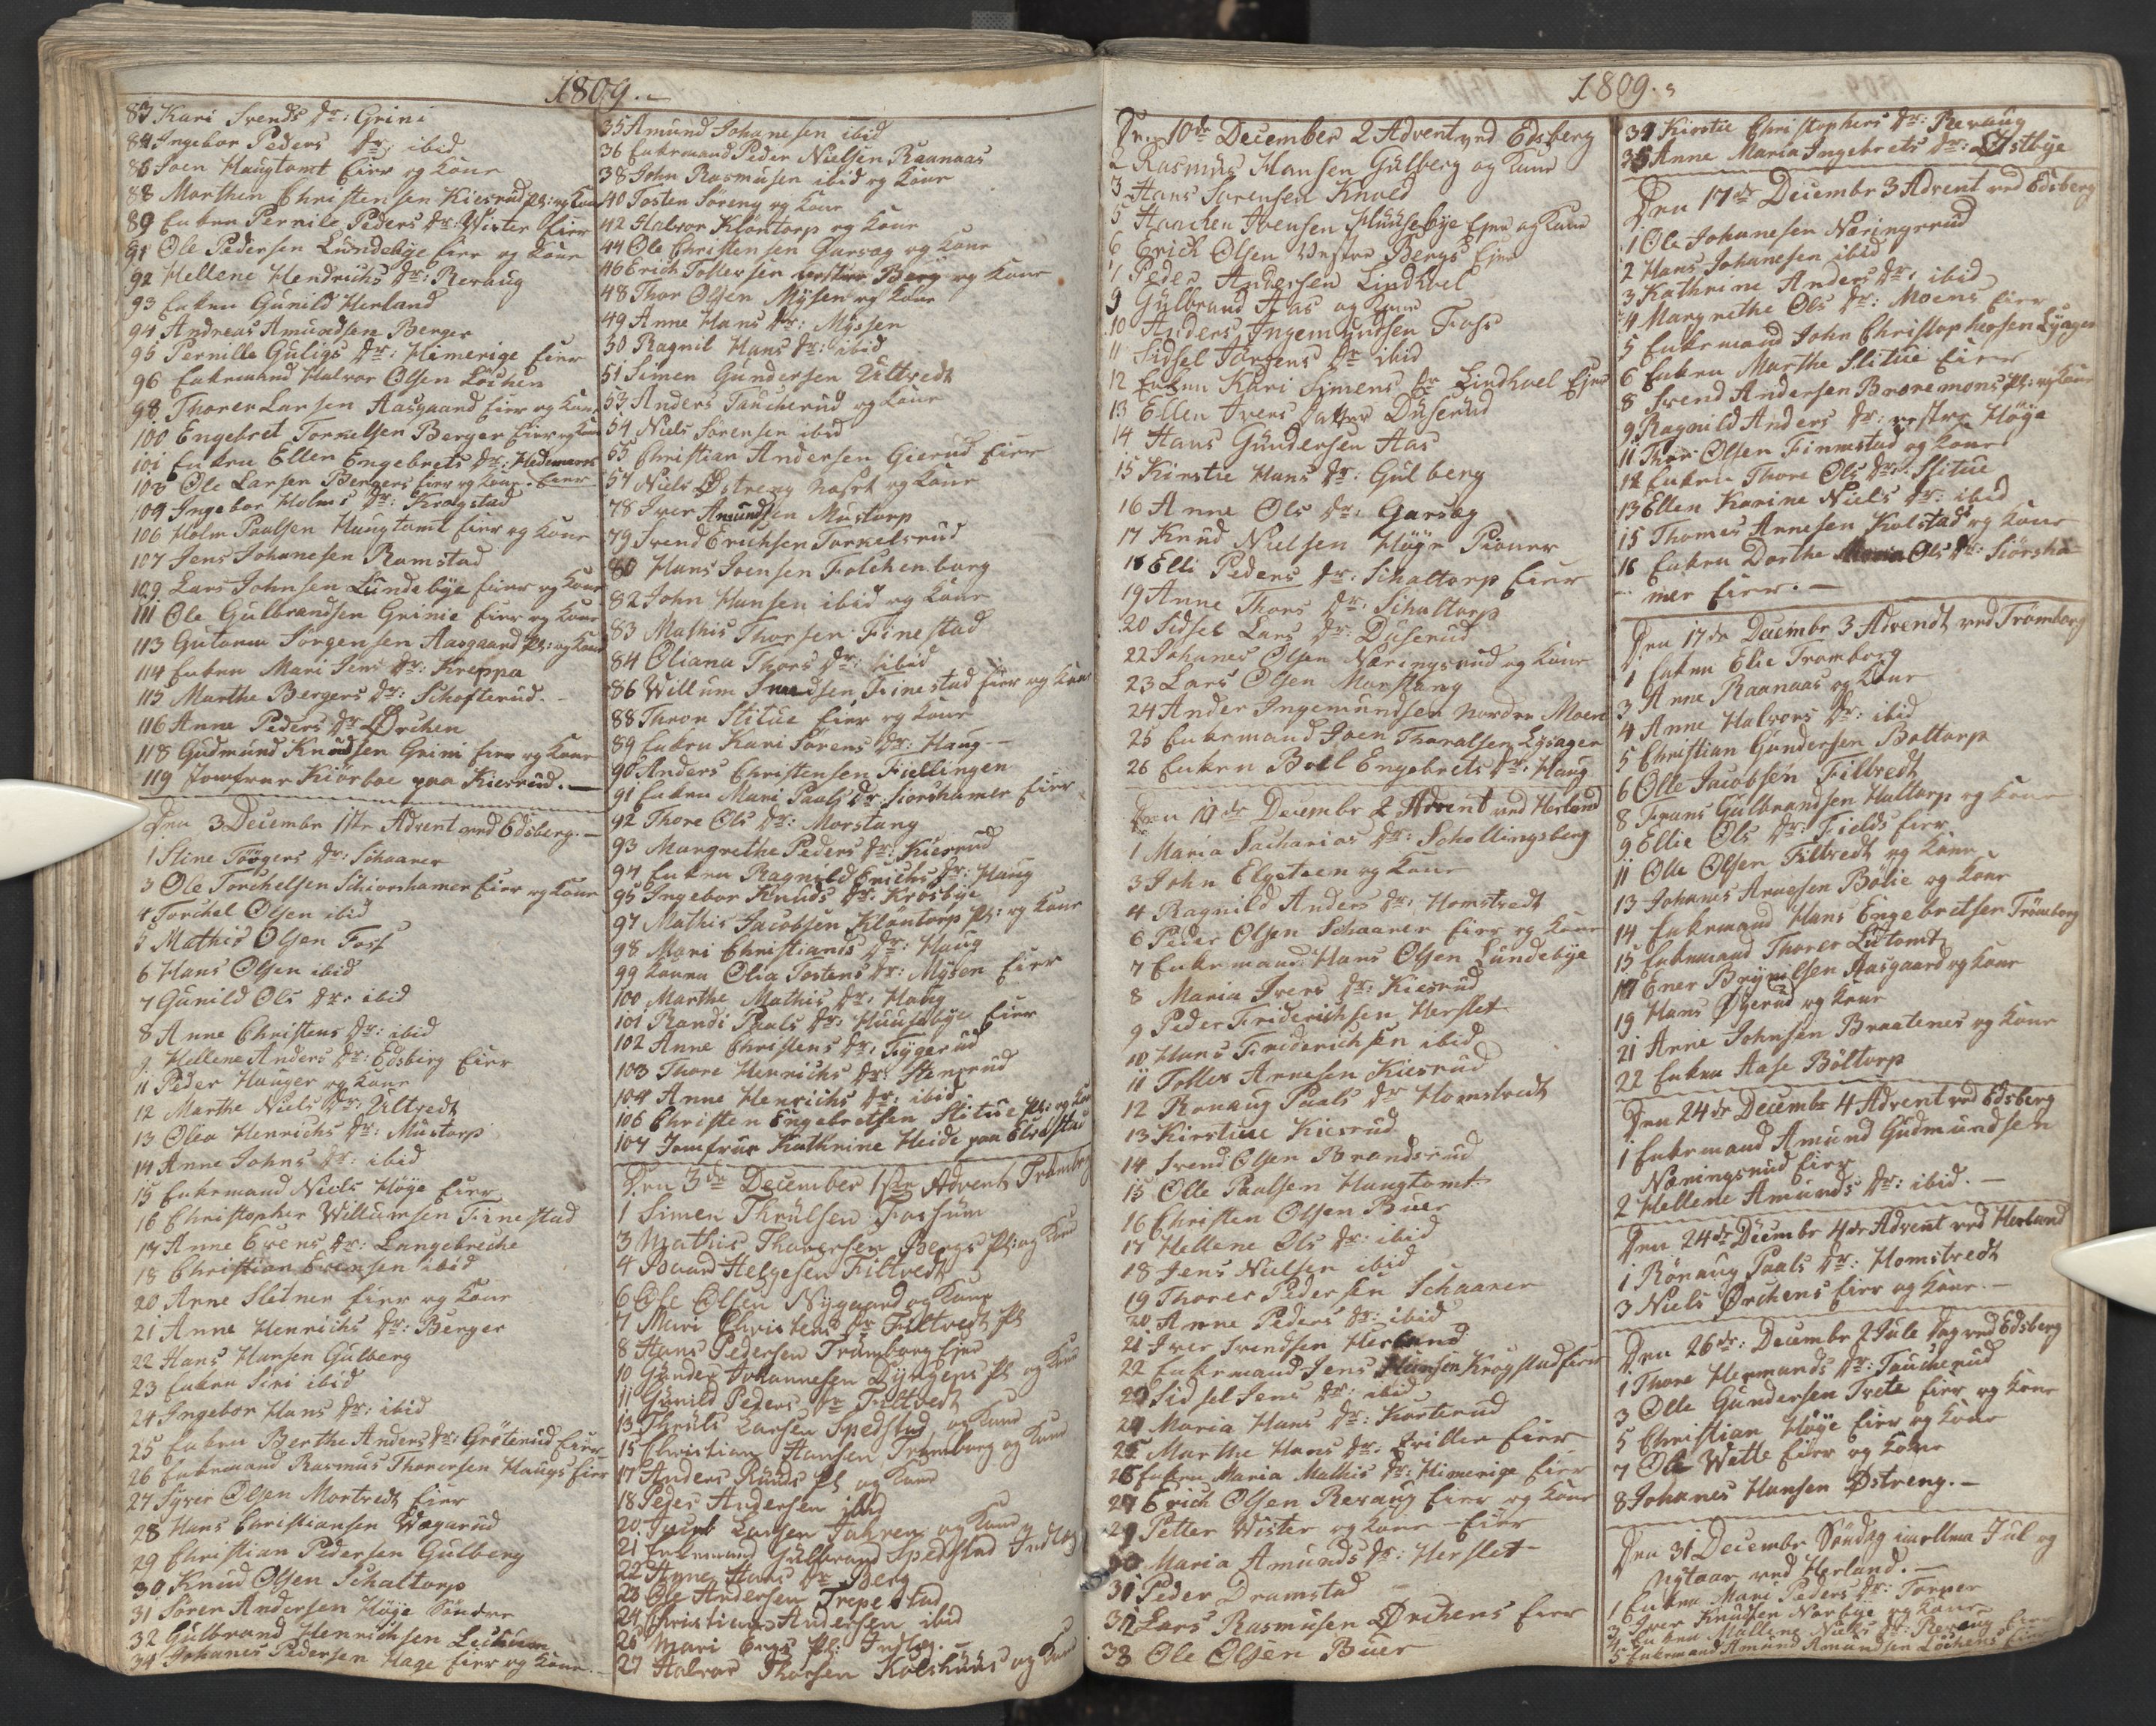 1809.
83 Kari Svends dr: Grini
84 Ingebor Peders dr: ibid
86 Joen Haugtomt Eier og Kone
88 Marthin Christensen Kiesrud pl: og Kone
89 Enken Pernile Peders dr: Wister Eier
91 Ole Pedersen Lundebye Eier og Kone
92 Hellene Hendrichs dr: Reraug
93 Enken Gunild Herland
94 Andreas Amundsen Berger
95 Pernille Guligs dr: Himerige Eier
96 Enkemand Halvor Olsen Löchen
98 Thorer Larsen Aasgaard Eier og Kone
100 Engebret Torkelsen Berger Eier og Kone
101 Enken Ellen Engebrets dr: Hedemarks
103 Ole Larsen Bergers Eier og Kone. Eier
104 Ingebor Holms dr: Krogstad
106 Holm Paulsen Haugtomt Eier og Kone
107 Jens Johanesen Ramstad
109 Lars Johnsen Lundebye Eier og Kone
111 Ole Gulbrandsen Grinie Eier og Kone
113 Gutorm Jörgensen Aasgaard pl: og Kone
114 Enken Mari Jens dr: Kreppa
115 Marthe Bergers dr: Schofterud.
116 Anne Peders dr Ørchen
118 Gudmund Knudsen Grini Eier og Kone
119 Jomfrue Kiörboe paa Kiesrud.
Den 3 Decembr 1ste Advent ved Edsberg.
1 Stine Töögers dr: Schaarer
3 Ole Torchelsen Schiorshamer Eier og Kone
4 Torchel Olsen ibid
5 Mathis Olsen Foss
6 Hans Olsen ibid
7 Gunild Ols dr: ibid
8 Anne Christens dr: ibid
9 Hellene Anders dr: Edsberg Eier
11 Peder Hauger og Kone
12 Marthe Niels dr: Ultvedt
13 Olea Henrichs dr: Mustorp
14 Anne Johns dr: ibid
15 Enkemand Niels Höye Eier
16 Christopher Willumsen Finestad
17 Anne Evens dr: Langebreche
18 Christian Evensen ibid
20 Arne Sletner Eier og Kone
21 Anne Henrichs dr: Berger
22 Hans Hansen Gulberg
23 Enken Siri ibid
24 Ingebor Hans dr: ibid
25 Enken Berthe Anders dr: Gröterud Eier
26 Enkemand Rasmus Thorersen Haugs Eier
27 Syver Olsen Mortvedt Eier
28 Hans Christiansen Wægarud
29 Christian Pedersen Gulberg
30 Knud Olsen Schaltorp
31 Sören Andersen Höye Söndre
32 Gulbrand Henrichsen Lechum
34 Johanes Pedersen Hage Eier og Kone
35 Amund Johanesen ibid
36 Enkemand Peder Nielsen Raanaas
38 John Rasmusen ibid og Kone
40 Tosten Söreng og Kone
42 Halvor Klöntorp og Kone
44 Ole Christensen Garseg og Kone
46 Erich Tollersen vestre Berg og Kone
48 Thor Olsen Mysen og Kone
49 Anne Hans dr: Myssen
50 Ragnil Hans dr: ibid
51 Simen Gundersen Ultvedt
53 Anders Taucherud og Kone
54 Niels Sörensen ibid
55 Christian Andersen Gierud Eier
57 Niels Østreng Næset og Kone
78 Iver Amundsen Mustorp
79 Svend Erichsen Torkelsrud
80 Hans Joensen Folchenborg
82 John Hansen ibid og Kone
83 Mathis Thorsen Finestad
84 Oliana Thors dr: ibid
86 Willum Svendsen Finestad Eier og Kone
88 Thron Slitue Eier og Kone
89 Enken Kari Sörens dr: Haug
90 Anders Christensen Fiellingen
91 Enken Mari Paals dr: Siorshamer Eier
92 Thore Ols dr: Morstang
93 Margrethe Peders dr: Kiesrud
94 Enken Ragnild Erichs dr: Haug
95 Ingebor Knuds dr: Krosbye
97 Mathis Jacobsen Klöntorp pl: og Kone
98 Mari Christians dr: Haug
99 Konen Olia Tostens dr: Mysen Eier
100 Marthe Mathis dr: Haug
101 Randi Paals dr: Huusebye Eier
102 Anne Christens dr: Fygerud
103 Thore Henrichs dr: Stenerud
104 Anne Henrichs dr: ibid
106 Christen Engebretsen Slitue pl: og Kone
107 Jomfrue Kathrine Heide paa Elvestad
Den 3de December 1ste Advent Trömborg
1 Simen Thrulsen Fossum
3 Mathis Thoversen Bergs pl: og Kone
4 Iver Helgesen Filtvedt
6 Ole Olsen Nygaard og Kone
7 Mari Christens dr Filtvedt Pl
8 Hans Pedersen Trömborg Eier
10 Gunder Johannesen Dyngens pl og Kone
11 Gunild Peders dr Filtvedt
13 Thruls Larsen Spedstad og Kone
15 Christian Hansen Trömborg og Kone
17 Anders Ruuds Pl og Kone
18 Peder Andersen ibid
20 Larsen Jahren og Kone
21 Enkemand Gulbrand Spedstad Indlag
22 Anne Hans dr Berg
23 Ole Andersen Trepestad
24 Christians Andersen ibid
26 Mari Engs pl: Indlag.
27 Halvor Thorsen Kolshuus og Kone
1809.
Den 10de December 2 Advent ved Edsberg
2 Rasmus Hansen Gulberg og Kone
3 Hans Sörensen Knold
5 Haachen Svensen Huusebye Ejer og Kone
6 Erich Olsen Vestre Bergs Ejer
7 Peder Andersen Lindhoel
9 Gulbrand Aas og Kone
10 Anders Ingemundsen Foss
11 Sidsel Jörgens dr ibid
12 Enken Kari Simens dr Lindhoel Ejer
13 Ellen Ivers datter Duserud
14 Hans Gundersen Aas
15 Kirstie Hans dr: Gulberg
16 Anne Ols dr: Garseg
17 Knud Nielsen Höye Pioner
18 Elli Peders dr: Schaltorp Eier
19 Anne Thors dr: Schaltorp
20 Sidsel Lars dr: Duserud
22 Johanes Olsen Næringsrud og Kone
23 Lars Olsen Morstang
24 Ander Ingemundsen Nordre Moen
25 Enkemand Joen Thoralsen Lysager
26 Enken Boel Engebrets dr: Haug
Den 10de Decembr 2 Advent ved Herland
1 Maria Sacharias dr: Schollingsberg
3 John Elgeteen og Kone
4 Ragnild Anders dr: Homstvedt
6 Peder Olsen Schaarer Eier og Kone
7 Enkemand Hans Olsen Lundebye
8 Maria Ivers dr: Kiesrud
9 Peder Friderichsen Herslet
10 Hans Friderichsen ibid
11 Tolles Arnesen Kiesrud
12 Ronaug Paals dr Homstvedt
13 Kirstine Kiesrud
14 Svend Olsen Brandsrud
15 Olle Paalsen Haugtomt
16 Christen Olsen Buer
17 Hellene Ols dr: ibid
18 Jens Nielsen ibid
19 Thorer Pedersen Schaarer
20 Anne Peders dr: ibid
21 Iver Svendsen Herland
22 Enkemand Jens Hansen Krogstad Eier
23 Sidsel Jens dr: ibid
24 Maria Hans dr: Korterud
25 Marthe Hans dr: Eier
26 Enken Maria Mathis dr: Himerige Eier
27 Erich Olsen Reraug Eier og Kone
29 Petter Wister og Kone Eier
30 Maria Amunds dr: Herslet
31 Peder Dramstad
32 Lars Rasmusen Ørchens Eier
33 Ole Olsen Buer
34 Kirstie Christophers dr: Reraug
35 Anne Maria Ingebrets dr: Østbye
Den 17de Decembr 3 Advent ved Edsberg
1 Ole Johanesen Næringsrud
2 Hans Johanesen ibid
3 Kathrine Anders dr: ibid
4 Margrethe Ols dr: Moens Eier
5 Enkemand John Christophersen Lysager
6 Enken Marthe Slitue Eier
8 Svend Andersen Broremons pl: og Kone
9 Ragnild Anders dr: vestre Höye
11 Thor Olsen Finnestad og Kone
12 Enken Thore Ols dr: Slitue
13 Ellen Karine Niels dr: ibid
15 Thomes Arnesen Kolstad og Kone
16 Enken Dorthe Maria Ols dr: Siörsha-
mer Eier.
Den 17de Decembr 3 Advendt ved Trömborg
1 Enken Elie Tromborg
3 Arne Raanaas og Kone
4 Anne Halvors dr: ibid
5 Christian Gundersen Boltorp
6 Olle Jacobsen Filtvedt
8 Frans Gulbrandsen Haltorp og Kone
9 Ellie Ols dr: Fields Eier
11 Olle Olsen Filtvedt og Kone
13 Johanes Arnesen Bölie og Kone
14 Enkemand Hans Engebretsen Trömborg
15 Enkemand Thorer Lutomt
17 Ener Brynilsen Aasgaard og Kone
19 Hans Øgerud og Kone
21 Arne Johnsen Braatenes og Kone
22 Enken Aase Böltorp
Den 24de Decembr 4 Advent ved Edsberg
1 Enkemand Amund Gudmundsen
Næringsrud Eier
2 Hellene Amunds dr: ibid.
Den 24de Decembr 4de Advent ved Herland
1 Rönaug Paals dr: Homstvedt
3 Niels Ørchens Eier og Kone.
Den 26de: Decembr 2 Jule Dag ved Edsberg
1 Thore Hermands dr: Taucherud
3 Olle Gundersen Trete Eier og Kone
5 Christian Höye Eier og Kone
7 Ole Wette Eier og Kone
8 Johanes Hansen Østreng.
Den 31 Decembr Söndag imellem Jul og
Nytaar ved Herland.
1 Enken Mari Peders dr: Torper
3 Iver Knudsen Narbye og Kone
4 Enken Mallene Niels dr: Reraug Eier
5 Enkemand Amund Amundsen Löchens Eier